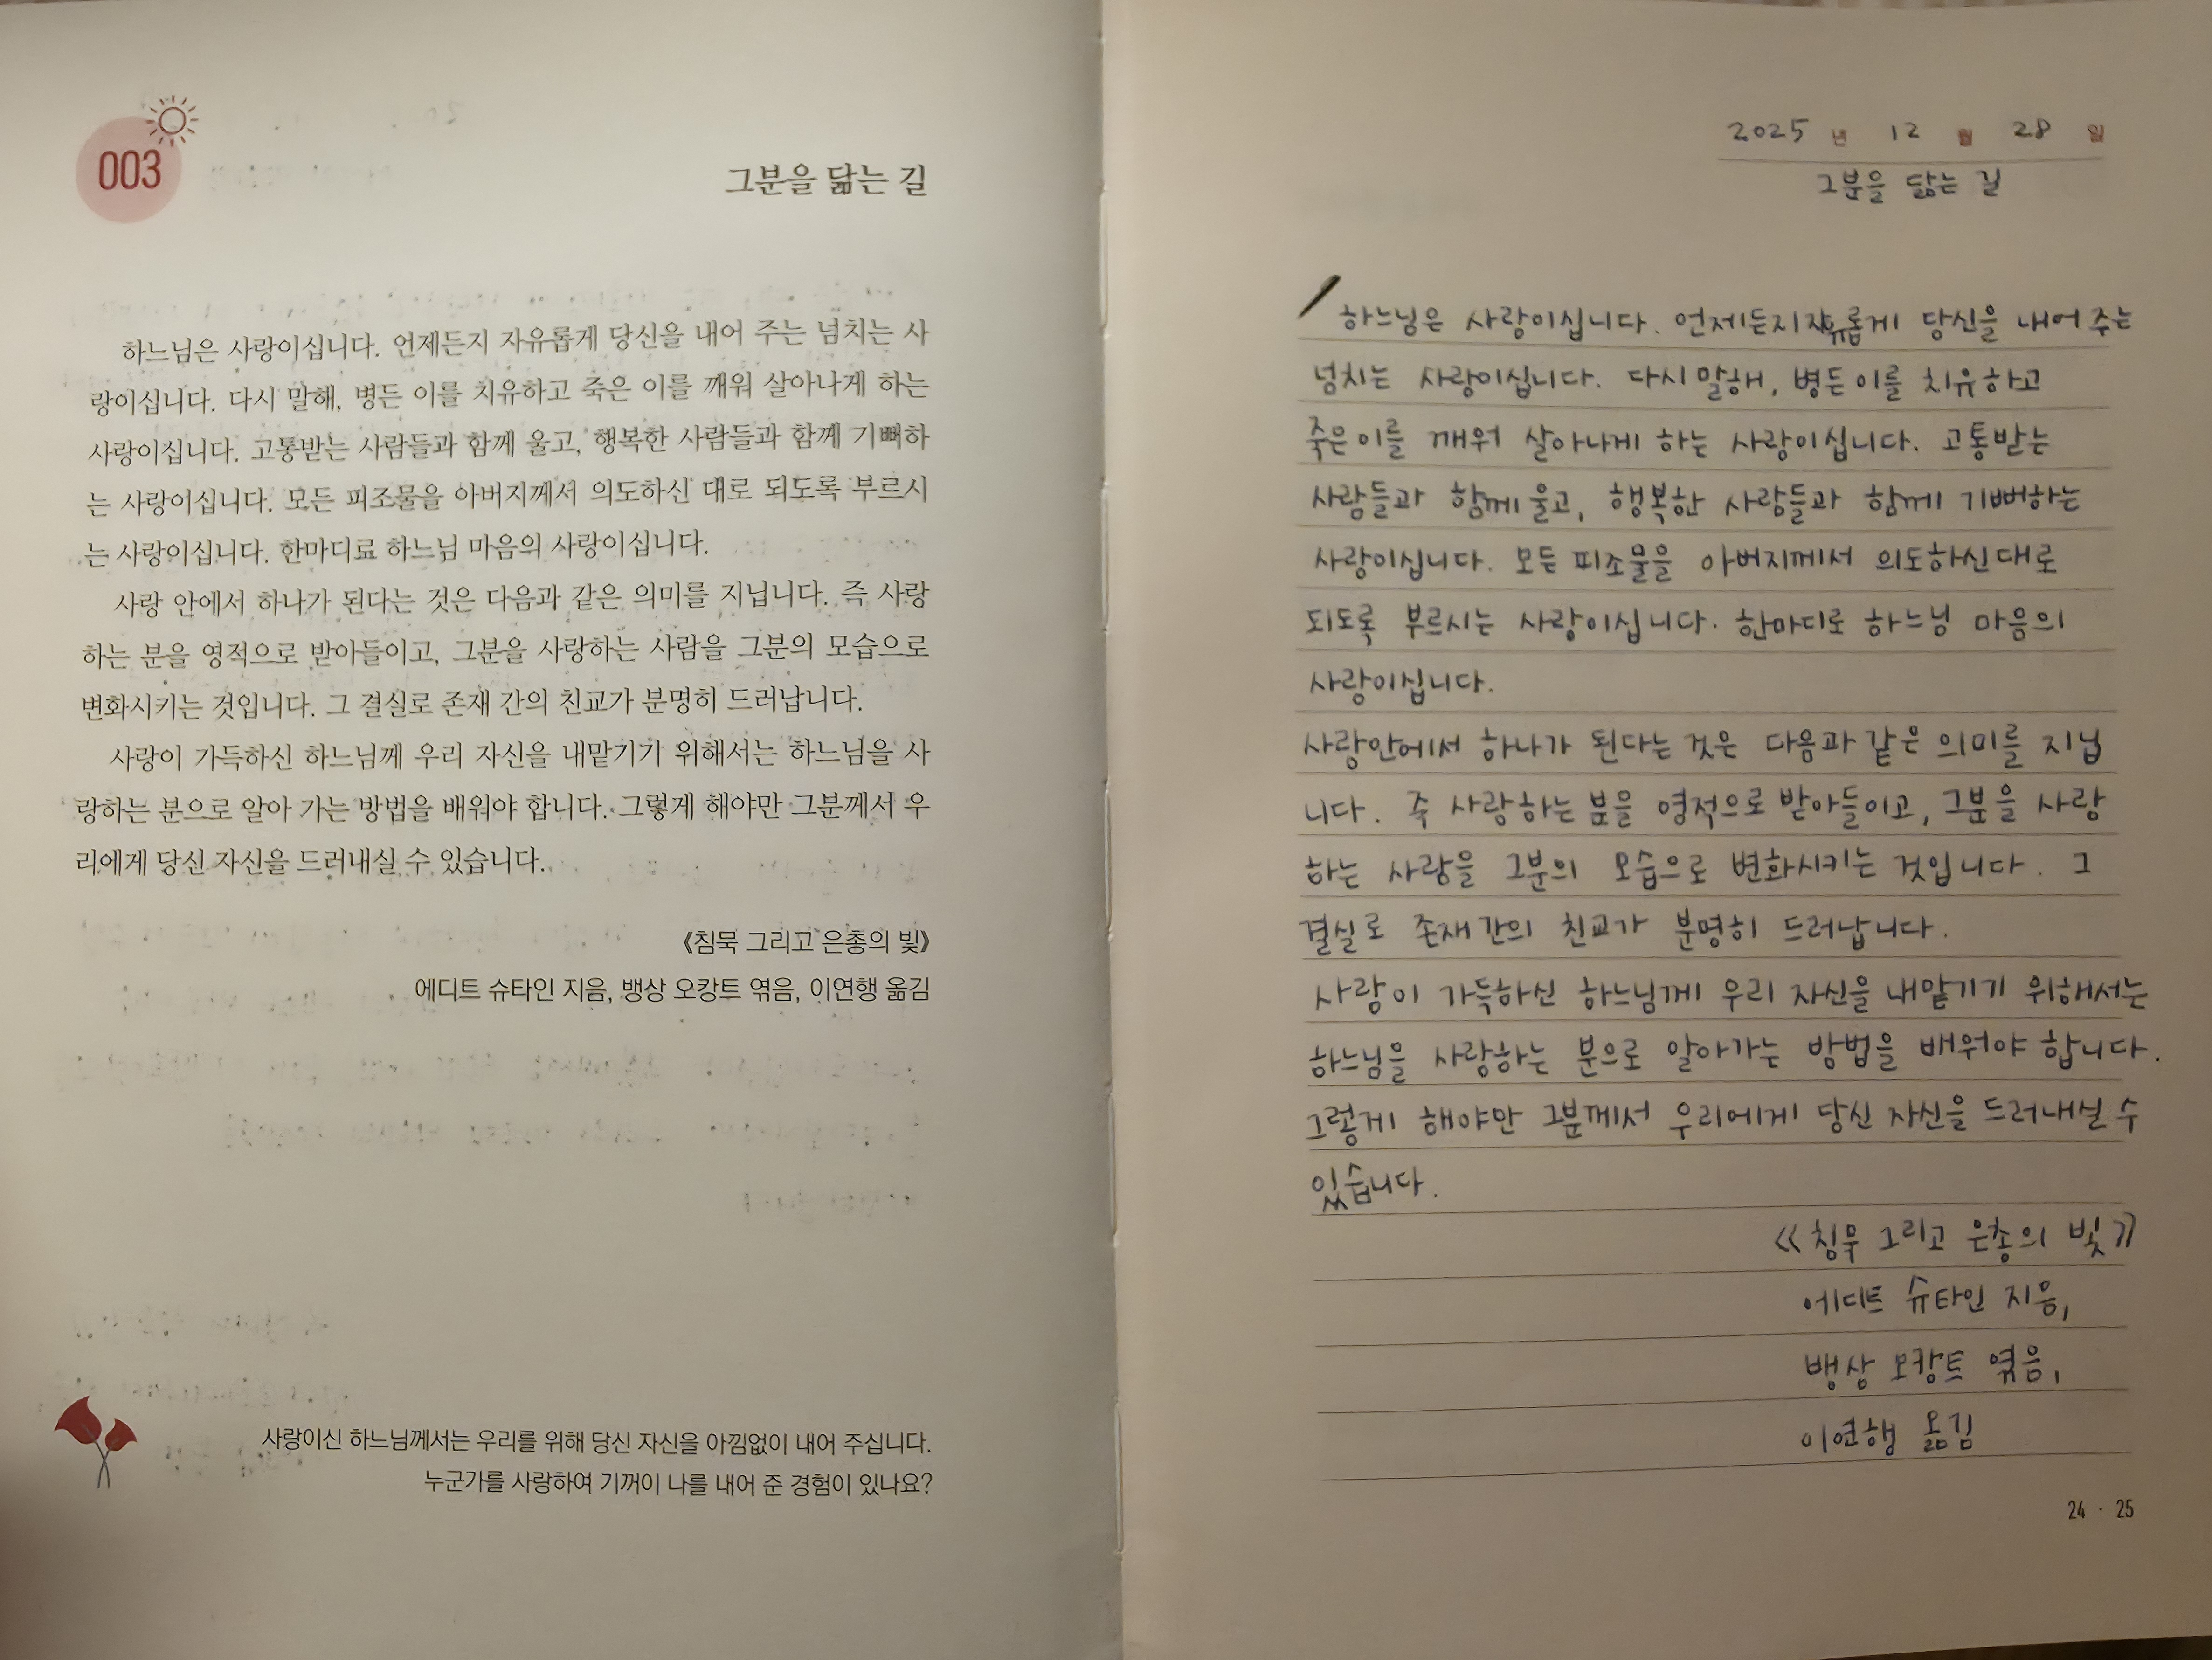 003
그분을 닮는 길
하느님은 사랑이십니다. 언제든지 자유롭게 당신을 내어 주는 넘치는 사
랑이십니다. 다시 말해, 병든 이를 치유하고 죽은 이를 깨워 살아나게 하는
사랑이십니다. 고통받는 사람들과 함께 울고, 행복한 사람들과 함께 기뻐하
는 사랑이십니다. 모든 피조물을 아버지께서 의도하신 대로 되도록 부르시
는 사랑이십니다. 한마디로 하느님 마음의 사랑이십니다.
사랑 안에서 하나가 된다는 것은 다음과 같은 의미를 지닙니다. 즉 사랑
하는 분을 영적으로 받아들이고, 그분을 사랑하는 사람을 그분의 모습으로
변화시키는 것입니다. 그 결실로 존재 간의 친교가 분명히 드러납니다.
사랑이 가득하신 하느님께 우리 자신을 내맡기기 위해서는 하느님을 사
랑하는 분으로 알아 가는 방법을 배워야 합니다. 그렇게 해야만 그분께서 우
리에게 당신 자신을 드러내실 수 있습니다.
《침묵 그리고 은총의 빛》
에디트 슈타인 지음, 뱅상 오캉트 엮음, 이연행 옮김
사랑이신 하느님께서는 우리를 위해 당신 자신을 아낌없이 내어 주십니다.
누군가를 사랑하여 기꺼이 나를 내어 준 경험이 있나요?
2025 년 12 월 28 일
그분을 닮는 길
하느님은 사랑이십니다. 언제든지 자유롭게 당신을 내어 주는
넘치는 사랑이십니다. 다시 말해, 병든 이를 치유하고
죽은 이를 깨워 살아나게 하는 사랑이십니다. 고통받는
사람들과 함께 울고, 행복한 사람들과 함께 기뻐하는
사랑이십니다. 모든 피조물을 아버지께서 의도하신 대로
되도록 부르시는 사랑이십니다. 한마디로 하느님 마음의
사랑이십니다.
사랑안에서 하나가 된다는 것은 다음과 같은 의미를 지닙
니다. 즉 사랑하는 분을 영적으로 받아들이고, 그분을 사랑
하는 사람을 그분의 모습으로 변화시키는 것입니다. 그
결실로 존재 간의 친교가 분명히 드러납니다.
사랑이 가득하신 하느님께 우리 자신을 내맡기기 위해서는
하느님을 사랑하는 분으로 알아가는 방법을 배워야 합니다.
그렇게 해야만 그분께서 우리에게 당신 자신을 드러내실 수
있습니다.
《침묵 그리고 은총의 빛》
에디트 슈타인 지음,
뱅상 오캉트 엮음,
이연행 옮김
24 · 25